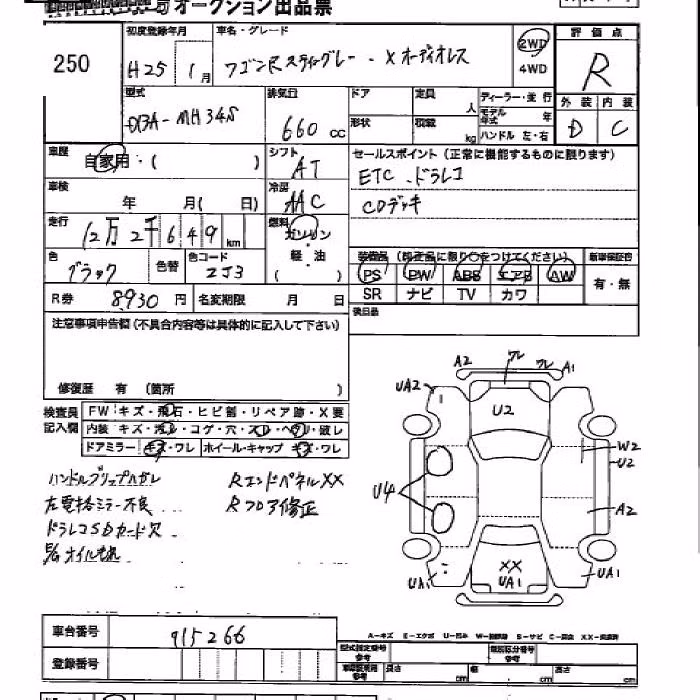 オークション出品票
250
初度登録年月
H25 1月
車名・グレード
ワゴンRスティングレー・Xオーディオレス
2WD
4WD
評価点
R
外装 内装
D C
型式
DBA-MH34S
排気量
660 cc
ドア
形状
定員
人
積載
kg
ディーラー・並行
モデル年式 年
ハンドル 左・右
車歴
自家用・( )
シフト
AT
セールスポイント (正常に機能するものに限ります)
ETC・ドラレコ
CDデッキ
車検
年 月( 日)
冷房
AAC
走行
12万2千649 km
燃料
ガソリン
・
軽・油
( )
色
ブラック
色替
色コード
ZJ3
装備品 (純正品に限り○をつけてください)
新車保証書
PS PW ABS エアB AW
SR ナビ TV カワ
有・無
R券 8930 円
名変期限 月 日
後日品
注意事項申告欄 (不具合内容等は具体的に記入して下さい)
修復歴 有 (箇所 )
検査員記入欄
FW:キズ・飛石・ヒビ割・リペア跡・X要
内装 キズ・汚レ・コゲ・穴・スレ・ヘタリ・破レ
ドアミラー キズ・ワレ
ホイール・キャップ キズ・ワレ
ハンドルグリップハガレ
左電格ミラー不良
ドラレコSDカード欠
E/Gオイルもれ
RエンドパネルXX
Rフロア修正
A2 ワレ ワレ A1
UA2
U2
W2
U2
U4
A2
XX
UA1
UA1
UA1
車台番号 915266
登録番号
A-キズ E-エクボ U-凹ミ S-サビ
型式指定番号
参考
類別区分番号
参考
長さ cm 幅 cm 高さ